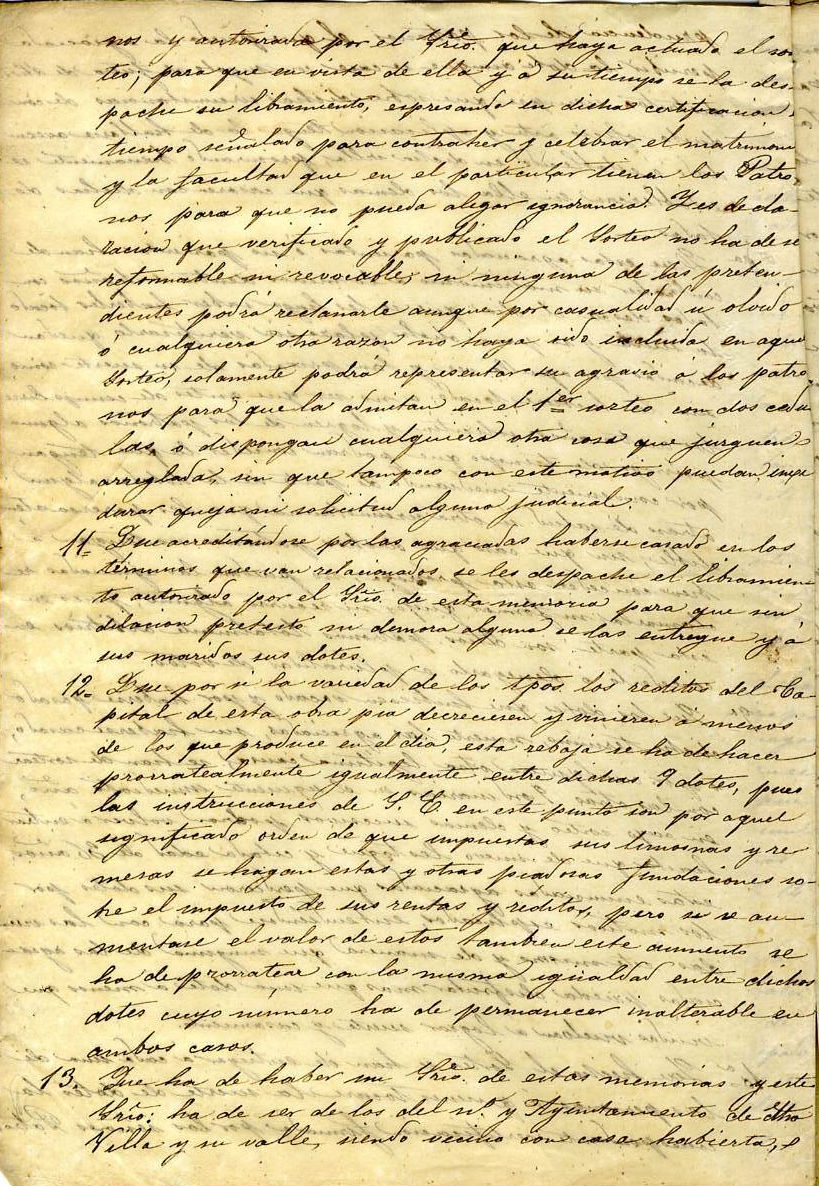 nos y autorizada por el Srio. que haya actuado el sor
teo; para que en vista de ella y á su tiempo se la des-
pache su libramiento, espresando en dicha certificacion
tiempo señalado para contraher y celebrar el matrimon
y la facultad que en el particular tienen los Patro
nos para que no pueda alegar ignorancia. Y es decla-
racion que verificado y publicado el Sorteo no ha de se
reformable ni revocable, ni ninguna de las preten-
dientes podrá reclamarle aunque por casualidad ú olvido
ó cualquiera otra razon no haya sido incluida en aque
Sorteo, solamente podrá representar su agravio á los patro
nos para que la admitan en el 1er sorteo con dos cedu
las, ó dispongan cualquiera otra cosa que juzguen
arreglada, sin que tampoco con este motivo puedan impe
durar queja ni solicitud alguna judicial.
11= Que acreditándose por las agraciadas haberse casado en los
términos que van relacionados, se les despache el libramien
to autorizado por el Srio. de esta memoria para que sin
dilacion pretesto ni demora alguna se las entregue y á
sus maridos sus dotes.
12= Que por si la variedad de los tpos. los reditos del Ca-
pital de esta obra pia decreciesen y vinieren á menos
de los que produce en el dia, esta rebaja se ha de hacer
prorratealmente igualmente entre dichas 9 dotes, pues
las instrucciones de S. E. en este punto son por aquel
significado orden de que impuestas sus limosnas y re
mesas se hagan estas y otras piadosas fundaciones so-
bre el impuesto de sus rentas y réditos, pero si se au-
mentase el valor de estos tambien este aumento se
ha de prorratear con la misma igualdad entre dichos
dotes cuyo número ha de permanecer inalterable en
ambos casos.
13. Que ha de haber un Srio. de estas memorias y este
Srio. ha de ser de los del nº. y Ayuntamiento de dha
Villa y su valle, siendo vecino con casa habierta,